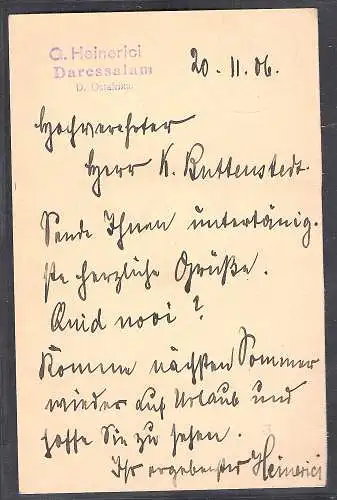 G. Heinerici
Daressalam
D. Ostafrika
20. 11. 06.
Hochverehrter
Herr K. Buttenstedt.
Sende Ihnen untertänig.
ste herzliche Grüße.
Quid novi?
Komme nächsten Sommer
wieder auf Urlaub und
hoffe Sie zu sehen.
Ihr ergebenster Heinerici